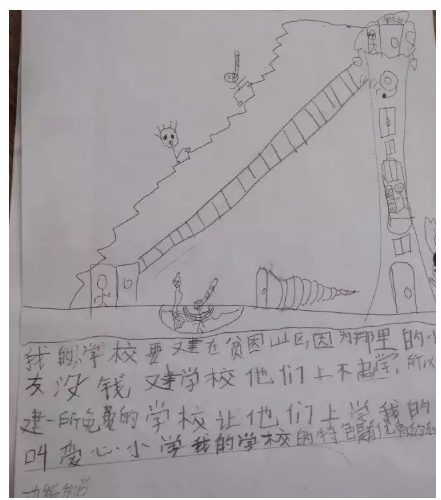 我的学校要建在贫困山区,因为那里的小
友没钱建学校他们上不起学,所以
建一所免费的学校让他们上学我的
叫爱心小学我的学校的特色